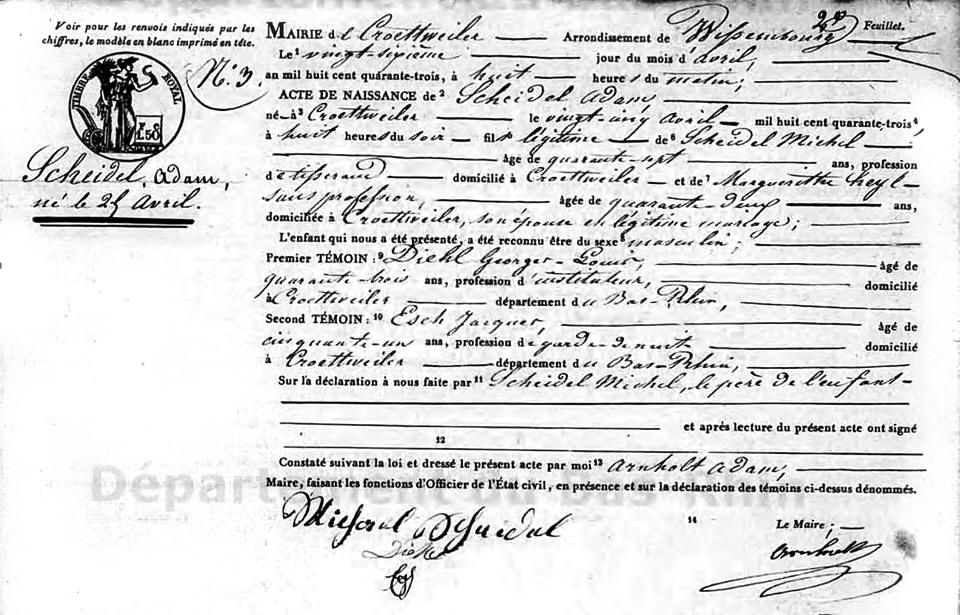 Voir pour les renvois indiqués par les
chiffres, le modèle en blanc imprimé en tête.
2e Feuillet.
N.o 3.
TIMBRE ROYAL
F. 1.50
Scheidel, Adam,
né le 25 Avril.
MAIRIE de Croettweiler — Arrondissement de Wissembourg
Le 1 vingt-sixième — jour du mois d'avril,
an mil huit cent quarante-trois, à huit — heures du matin;
ACTE DE NAISSANCE de 2 Scheidel Adam,
né à 3 Croettweiler — le vingt-cinq avril — mil huit cent quarante-trois 4,
à huit heures du soir — fils 5 légitime — de 6 Scheidel Michel —
âgé de quarante-sept — ans, profession
de tisserand — domicilié à Croettweiler — et de 7 Marguerithe Heyl —
sans profession, — âgée de quarante-deux — ans,
domiciliée à Croettweiler, son épouse en légitime mariage; —
L'enfant qui nous a été présenté, a été reconnu être du sexe 8 masculin; —
Premier TÉMOIN : 9 Diehl Georges-Louis, — âgé de
quarante-trois ans, profession d'instituteur, — domicilié
à Croettweiler — département du Bas-Rhin, —
Second TÉMOIN : 10 Esch Jacques, — âgé de
cinquante-un ans, profession de garde-de-nuit — domicilié
à Croettweiler — département du Bas-Rhin, —
Sur la déclaration à nous faite par 11 Scheidel Michel, le père de l'enfant —
et après lecture du présent acte ont signé
12
Constaté suivant la loi et dressé le présent acte par moi 13 Arnholt Adam, —
Maire, faisant les fonctions d'Officier de l'État civil, en présence et sur la déclaration des témoins ci-dessus dénommés.
Département du Bas-Rhin
14 Le Maire ; —
Michael Scheidel
Diehl
Arnholt